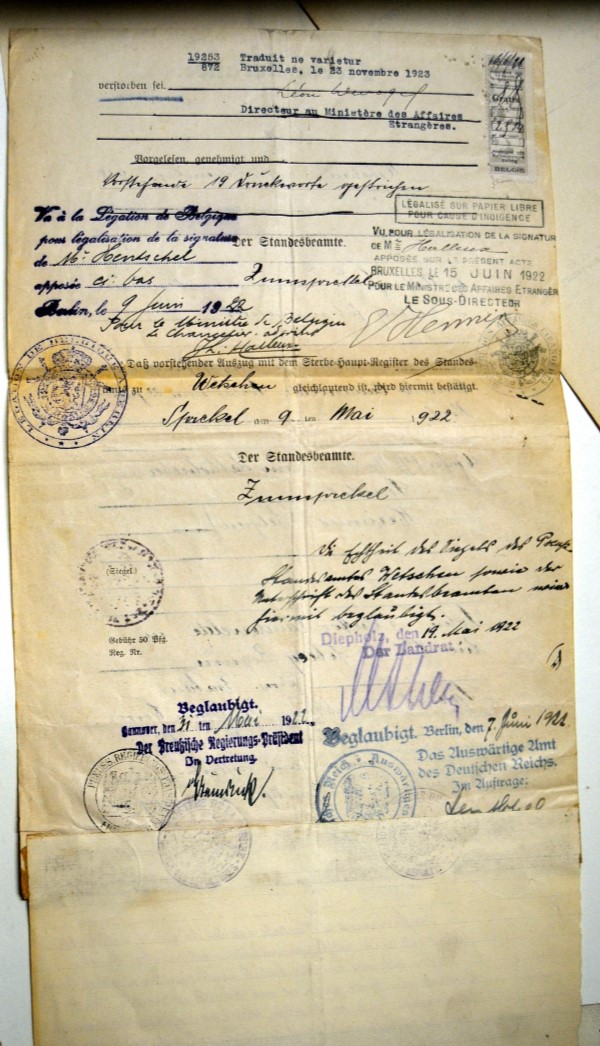 19253
872
Traduit ne varietur
Bruxelles, le 23 novembre 1923
verstorben sei.
Léon
Directeur au Ministère des Affaires
Etrangères.
Vorgelesen, genehmigt und
Vorstehende 19 Druckworte gestrichen
Vu à la Légation de Belgique
pour légalisation de la signature
de Mr Hentschel
apposée ci bas
Berlin, le 9 Juin 1922
Pour le Ministre de Belgique
Le Chancelier
Der Standesbeamte.
Zumsprekel
LÉGALISÉ SUR PAPIER LIBRE
POUR CAUSE D'INDIGENCE
VU POUR LÉGALISATION DE LA SIGNATURE
DE M
APPOSÉE SUR LE PRÉSENT ACTE
BRUXELLES, LE 15 JUIN 1922
POUR LE MINISTRE DES AFFAIRES ETRANGÈR
LE SOUS-DIRECTEUR
BELGIE
Daß vorstehender Auszug mit dem Sterbe-Haupt-Register des Standes
amts zu Wetschen gleichlautend ist, wird hiermit bestätigt.
Sprekel am 9 ten Mai 1922.
Der Standesbeamte.
Zumsprekel
Die Echtheit des Siegels des Preuß.
Standesamtes Wetschen sowie der
Unterschrift des Standesbeamten wird
hiermit beglaubigt.
(Siegel.)
Gebühr 50 Pfg.
Reg. Nr.
Diepholz, den 19. Mai 1922
Der Landrat
Beglaubigt.
Hannover, den 31 ten Mai 1922
Der Preußische Regierungs-Präsident
In Vertretung.
Beglaubigt. Berlin, den 7 Juni 1922
Das Auswärtige Amt
des Deutschen Reichs.
Im Auftrage: